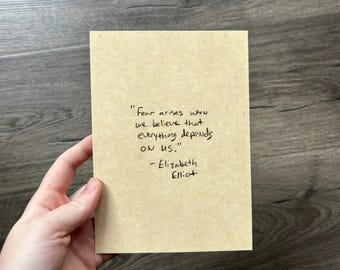 "Fear arises when
we believe that
everything depends
on us."
- Elizabeth
Elliot